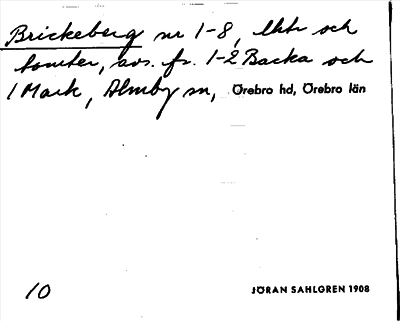 Brickeberg nr 1-8, lhtr och
tomter, avs. fr. 1-2 Backa och
1 Mark, Almby sn, Örebro hd, Örebro län
10
JÖRAN SAHLGREN 1908